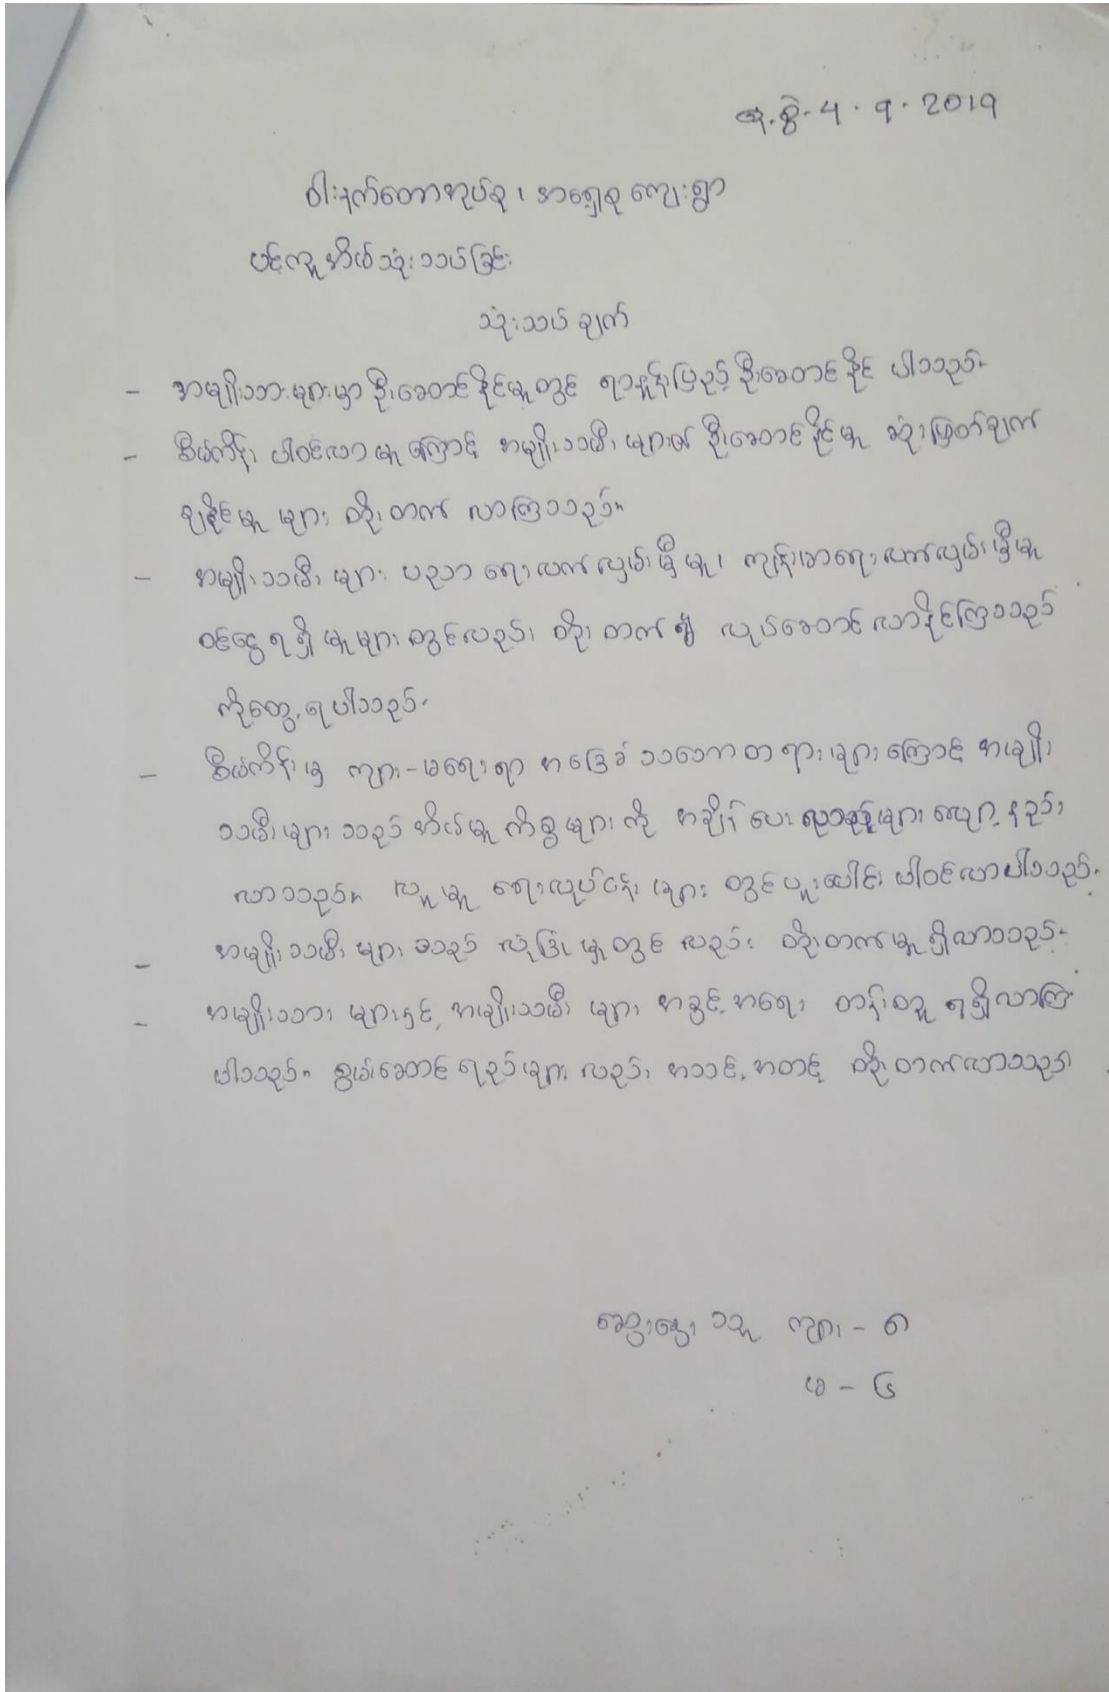 ရက်စွဲ - 4 . 9 . 2019
ဝါးနက်တောအုပ်စု၊ အရှေ့စုကျေးရွာ
ပင်ကူအိမ်သုံးသပ်ခြင်း
သုံးသပ်ချက်
- အမျိုးသားများမှာ ဦးဆောင်နိုင်မှုတွင် ရာနှုန်းပြည့် ဦးဆောင်နိုင်ပါသည်။
- စီမံကိန်း ပါဝင်လာမှုကြောင့် အမျိုးသမီးများ၏ ဦးဆောင်နိုင်မှု ဆုံးဖြတ်ချက်
ချနိုင်မှုများ တိုးတက်လာကြသည်။
- အမျိုးသမီးများ ပညာရေးလက်လှမ်းမှီမှု၊ ကျန်းမာရေးလက်လှမ်းမှီမှု
ဝင်ငွေရရှိမှုများတွင်လည်း တိုးတက်၍ လုပ်ဆောင်လာနိုင်ကြသည်
ကိုတွေ့ရပါသည်။
- စီမံကိန်းမှ ကျား-မရေးရာ အခြေခံသဘောတရားများကြောင့် အမျိုး
သမီးများသည် အိမ်မှုကိစ္စများကို အချိန်ပေး လျော့နည်း
လာသည်။ လူမှုရေးလုပ်ငန်းများတွင် ပူးပေါင်းပါဝင်လာပါသည်။
- အမျိုးသမီးများသည် လုံခြုံမှုတွင်လည်း တိုးတက်မှုရှိလာသည်။
- အမျိုးသားများနှင့် အမျိုးသမီးများ အခွင့်အရေး တန်းတူရရှိလာကြ
ပါသည်။ စွမ်းဆောင်ရည်များလည်း အသင့်အတင့် တိုးတက်လာသည်။
ဆွေးနွေးသူ ကျား - ၈
မ - ၆